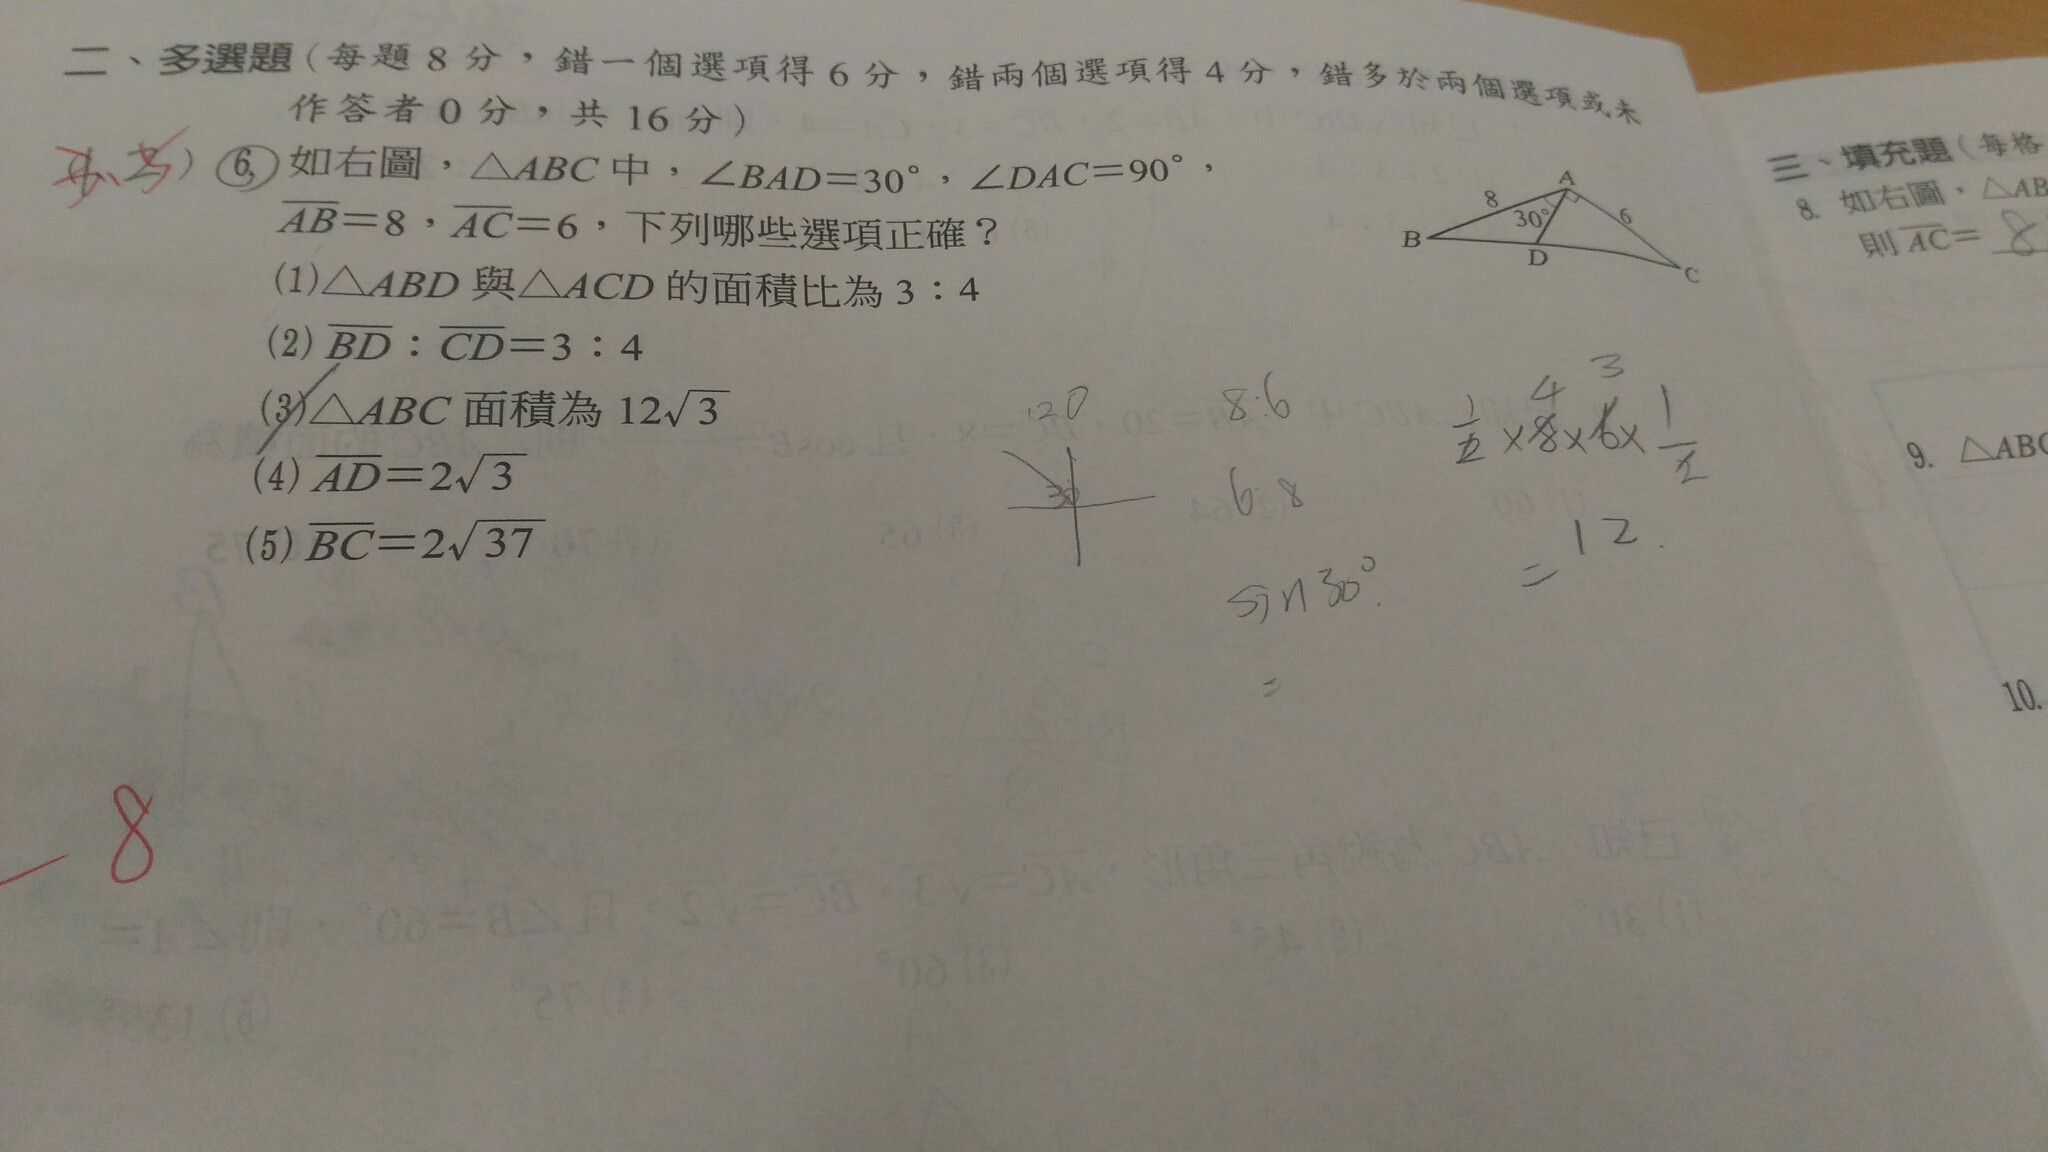 二、多選題(每題8分，錯一個選項得6分，錯兩個選項得4分，錯多於兩個選項或未
作答者0分，共16分)
) 6. 如右圖，△ABC中，∠BAD=30°，∠DAC=90°，
AB=8，AC=6，下列哪些選項正確？
(1)△ABD與△ACD的面積比為3：4
(2) BD：CD=3：4
(3)△ABC面積為12√3
(4) AD=2√3
(5) BC=2√37
A
8
30°
6
B
D
C
120
30
8:6
6:8
sin30°.
=
4 3
1/2×8×6×1/2
=12.
-8
三、填充題(每格
8. 如右圖，△AB
則AC= 8
9. △ABC
10.